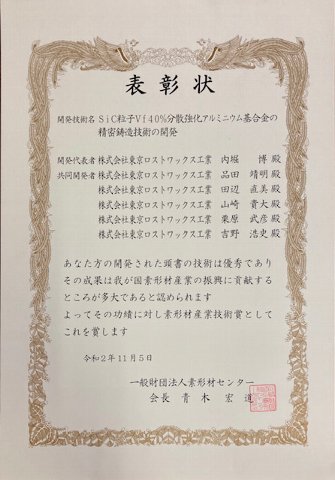 表彰状
開発技術名 SiC粒子Vf40%分散強化アルミニウム基合金の
精密鋳造技術の開発
開発代表者 株式会社東京ロストワックス工業 内堀 博 殿
共同開発者 株式会社東京ロストワックス工業 品田 靖明 殿
株式会社東京ロストワックス工業 田辺 直美 殿
株式会社東京ロストワックス工業 山崎 貴大 殿
株式会社東京ロストワックス工業 栗原 武彦 殿
株式会社東京ロストワックス工業 吉野 浩史 殿
あなた方の開発された頭書の技術は優秀であり
その成果は我が国素形材産業の振興に貢献する
ところが多大であると認められます
よってその功績に対し素形材産業技術賞として
これを賞します
令和2年11月5日
一般財団法人素形材センター
会長 青木 宏道